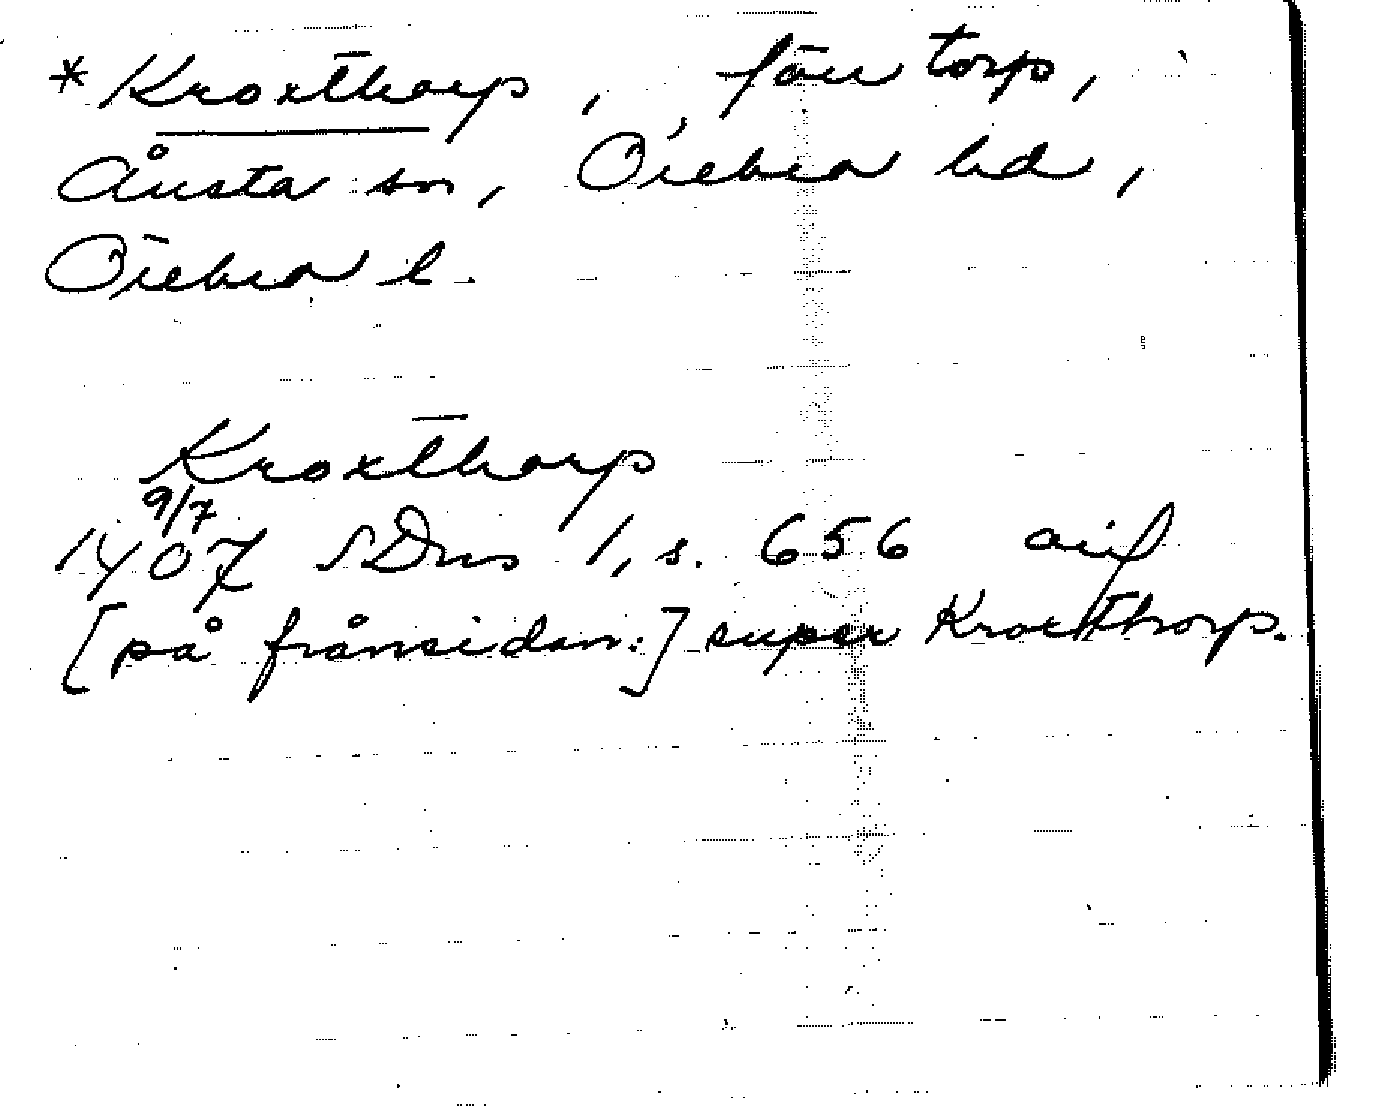 * Kroxthorp, förv torp,
Ånsta sn, Örebro hd,
Örebro l.
Kroxthorp
9/7
1407 SDns 1, s. 656 avif
[på frånsidan:] super Kroxthorp.